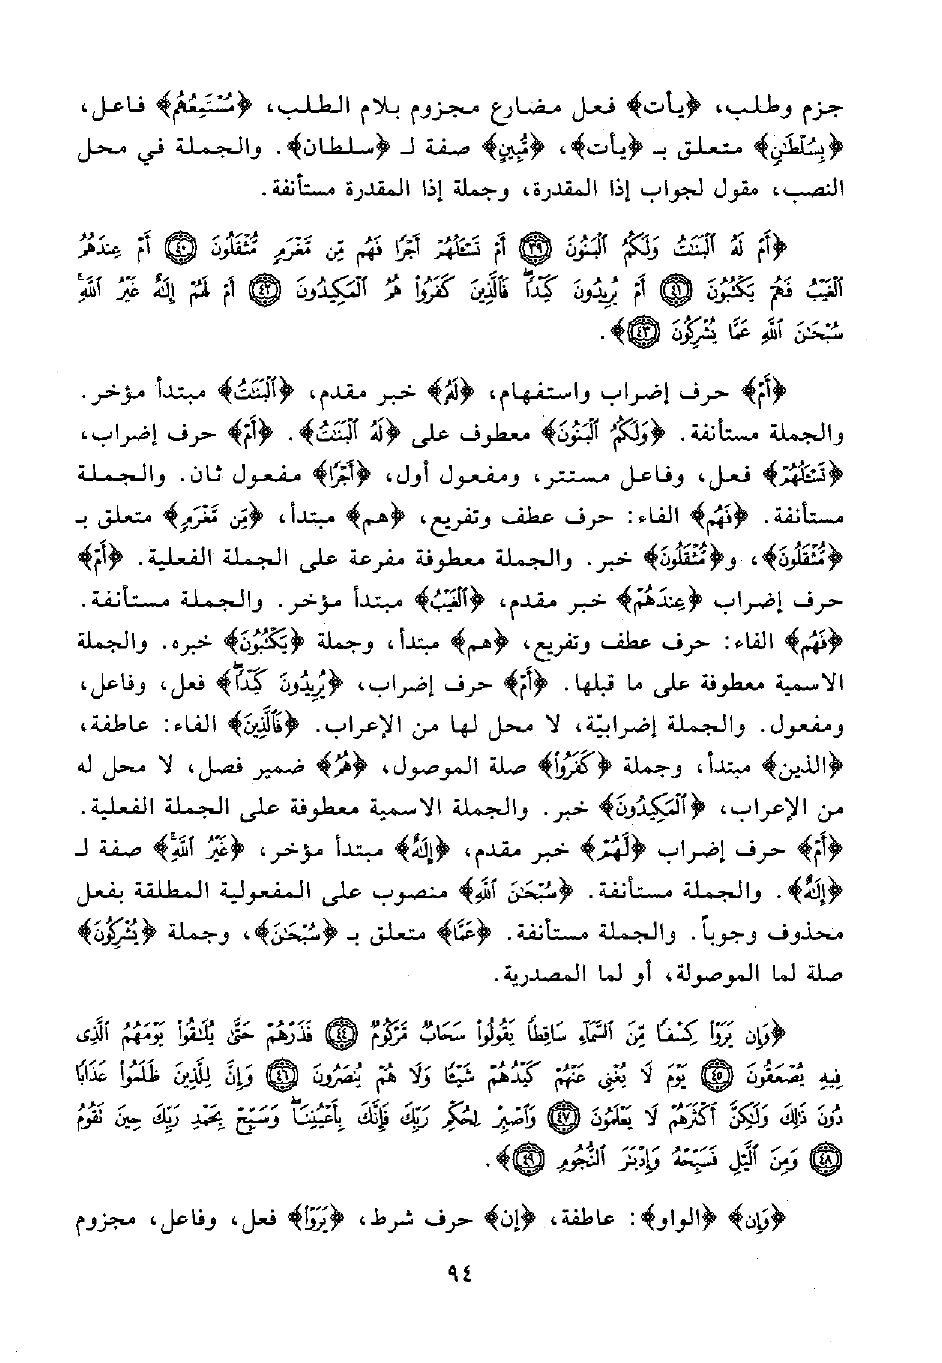 جزم وطلب، ﴿يأت﴾ فعل مضارع مجزوم بلام الطلب، ﴿مُسْتَمِعُهُم﴾ فاعل،
﴿بِسُلْطَٰنٍ﴾ متعلق بـ ﴿يأت﴾، ﴿مُّبِينٍ﴾ صفة لـ ﴿سلطان﴾. والجملة في محل
النصب، مقول لجواب إذا المقدرة، وجملة إذا المقدرة مستأنفة.
﴿أَمْ لَهُ ٱلْبَنَٰتُ وَلَكُمُ ٱلْبَنُونَ ٣٩ أَمْ تَسْـَٔلُهُمْ أَجْرًا فَهُم مِّن مَّغْرَمٍ مُّثْقَلُونَ ٤٠ أَمْ عِندَهُمُ
ٱلْغَيْبُ فَهُمْ يَكْتُبُونَ ٤١ أَمْ يُرِيدُونَ كَيْدًا ۖ فَٱلَّذِينَ كَفَرُوا۟ هُمُ ٱلْمَكِيدُونَ ٤٢ أَمْ لَهُمْ إِلَٰهٌ غَيْرُ ٱللَّهِ ۚ
سُبْحَٰنَ ٱللَّهِ عَمَّا يُشْرِكُونَ ٤٣﴾.
﴿أَمْ﴾ حرف إضراب واستفهام، ﴿لَهُ﴾ خبر مقدم، ﴿ٱلْبَنَٰتُ﴾ مبتدأ مؤخر.
والجملة مستأنفة. ﴿وَلَكُمُ ٱلْبَنُونَ﴾ معطوف على ﴿لَهُ ٱلْبَنَٰتُ﴾. ﴿أَمْ﴾ حرف إضراب،
﴿تَسْـَٔلُهُمْ﴾ فعل، وفاعل مستتر، ومفعول أول، ﴿أَجْرًا﴾ مفعول ثان. والجملة
مستأنفة. ﴿فَهُم﴾ الفاء: حرف عطف وتفريع، ﴿هم﴾ مبتدأ، ﴿مِّن مَّغْرَمٍ﴾ متعلق بـ
﴿مُّثْقَلُونَ﴾، و﴿مُّثْقَلُونَ﴾ خبر. والجملة معطوفة مفرعة على الجملة الفعلية. ﴿أَمْ﴾
حرف إضراب ﴿عِندَهُمُ﴾ خبر مقدم، ﴿ٱلْغَيْبُ﴾ مبتدأ مؤخر. والجملة مستأنفة.
﴿فَهُمْ﴾ الفاء: حرف عطف وتفريع، ﴿هم﴾ مبتدأ، وجملة ﴿يَكْتُبُونَ﴾ خبره. والجملة
الاسمية معطوفة على ما قبلها. ﴿أَمْ﴾ حرف إضراب، ﴿يُرِيدُونَ كَيْدًا ۖ﴾ فعل، وفاعل،
ومفعول. والجملة إضرابيّة، لا محل لها من الإعراب. ﴿فَٱلَّذِينَ﴾ الفاء: عاطفة،
﴿الذين﴾ مبتدأ، وجملة ﴿كَفَرُوا۟﴾ صلة الموصول، ﴿هُمُ﴾ ضمير فصل، لا محل له
من الإعراب، ﴿ٱلْمَكِيدُونَ﴾ خبر. والجملة الاسمية معطوفة على الجملة الفعلية.
﴿أَمْ﴾ حرف إضراب ﴿لَهُمْ﴾ خبر مقدم، ﴿إِلَٰهٌ﴾ مبتدأ مؤخر، ﴿غَيْرُ ٱللَّهِ ۚ﴾ صفة لـ
﴿إِلَٰهٌ﴾. والجملة مستأنفة. ﴿سُبْحَٰنَ ٱللَّهِ﴾ منصوب على المفعولية المطلقة بفعل
محذوف وجوباً. والجملة مستأنفة. ﴿عَمَّا﴾ متعلق بـ ﴿سُبْحَٰنَ﴾، وجملة ﴿يُشْرِكُونَ﴾
صلة لما الموصولة، أو لما المصدرية.
﴿وَإِن يَرَوْا۟ كِسْفًا مِّنَ ٱلسَّمَآءِ سَاقِطًا يَقُولُوا۟ سَحَابٌ مَّرْكُومٌ ٤٤ فَذَرْهُمْ حَتَّىٰ يُلَٰقُوا۟ يَوْمَهُمُ ٱلَّذِى
فِيهِ يُصْعَقُونَ ٤٥ يَوْمَ لَا يُغْنِى عَنْهُمْ كَيْدُهُمْ شَيْـًٔا وَلَا هُمْ يُنصَرُونَ ٤٦ وَإِنَّ لِلَّذِينَ ظَلَمُوا۟ عَذَابًا
دُونَ ذَٰلِكَ وَلَٰكِنَّ أَكْثَرَهُمْ لَا يَعْلَمُونَ ٤٧ وَٱصْبِرْ لِحُكْمِ رَبِّكَ فَإِنَّكَ بِأَعْيُنِنَا ۖ وَسَبِّحْ بِحَمْدِ رَبِّكَ حِينَ تَقُومُ
٤٨ وَمِنَ ٱلَّيْلِ فَسَبِّحْهُ وَإِدْبَٰرَ ٱلنُّجُومِ ٤٩﴾.
﴿وَإِن﴾ ﴿الواو﴾: عاطفة، ﴿إن﴾ حرف شرط، ﴿يَرَوْا۟﴾ فعل، وفاعل، مجزوم
٩٤